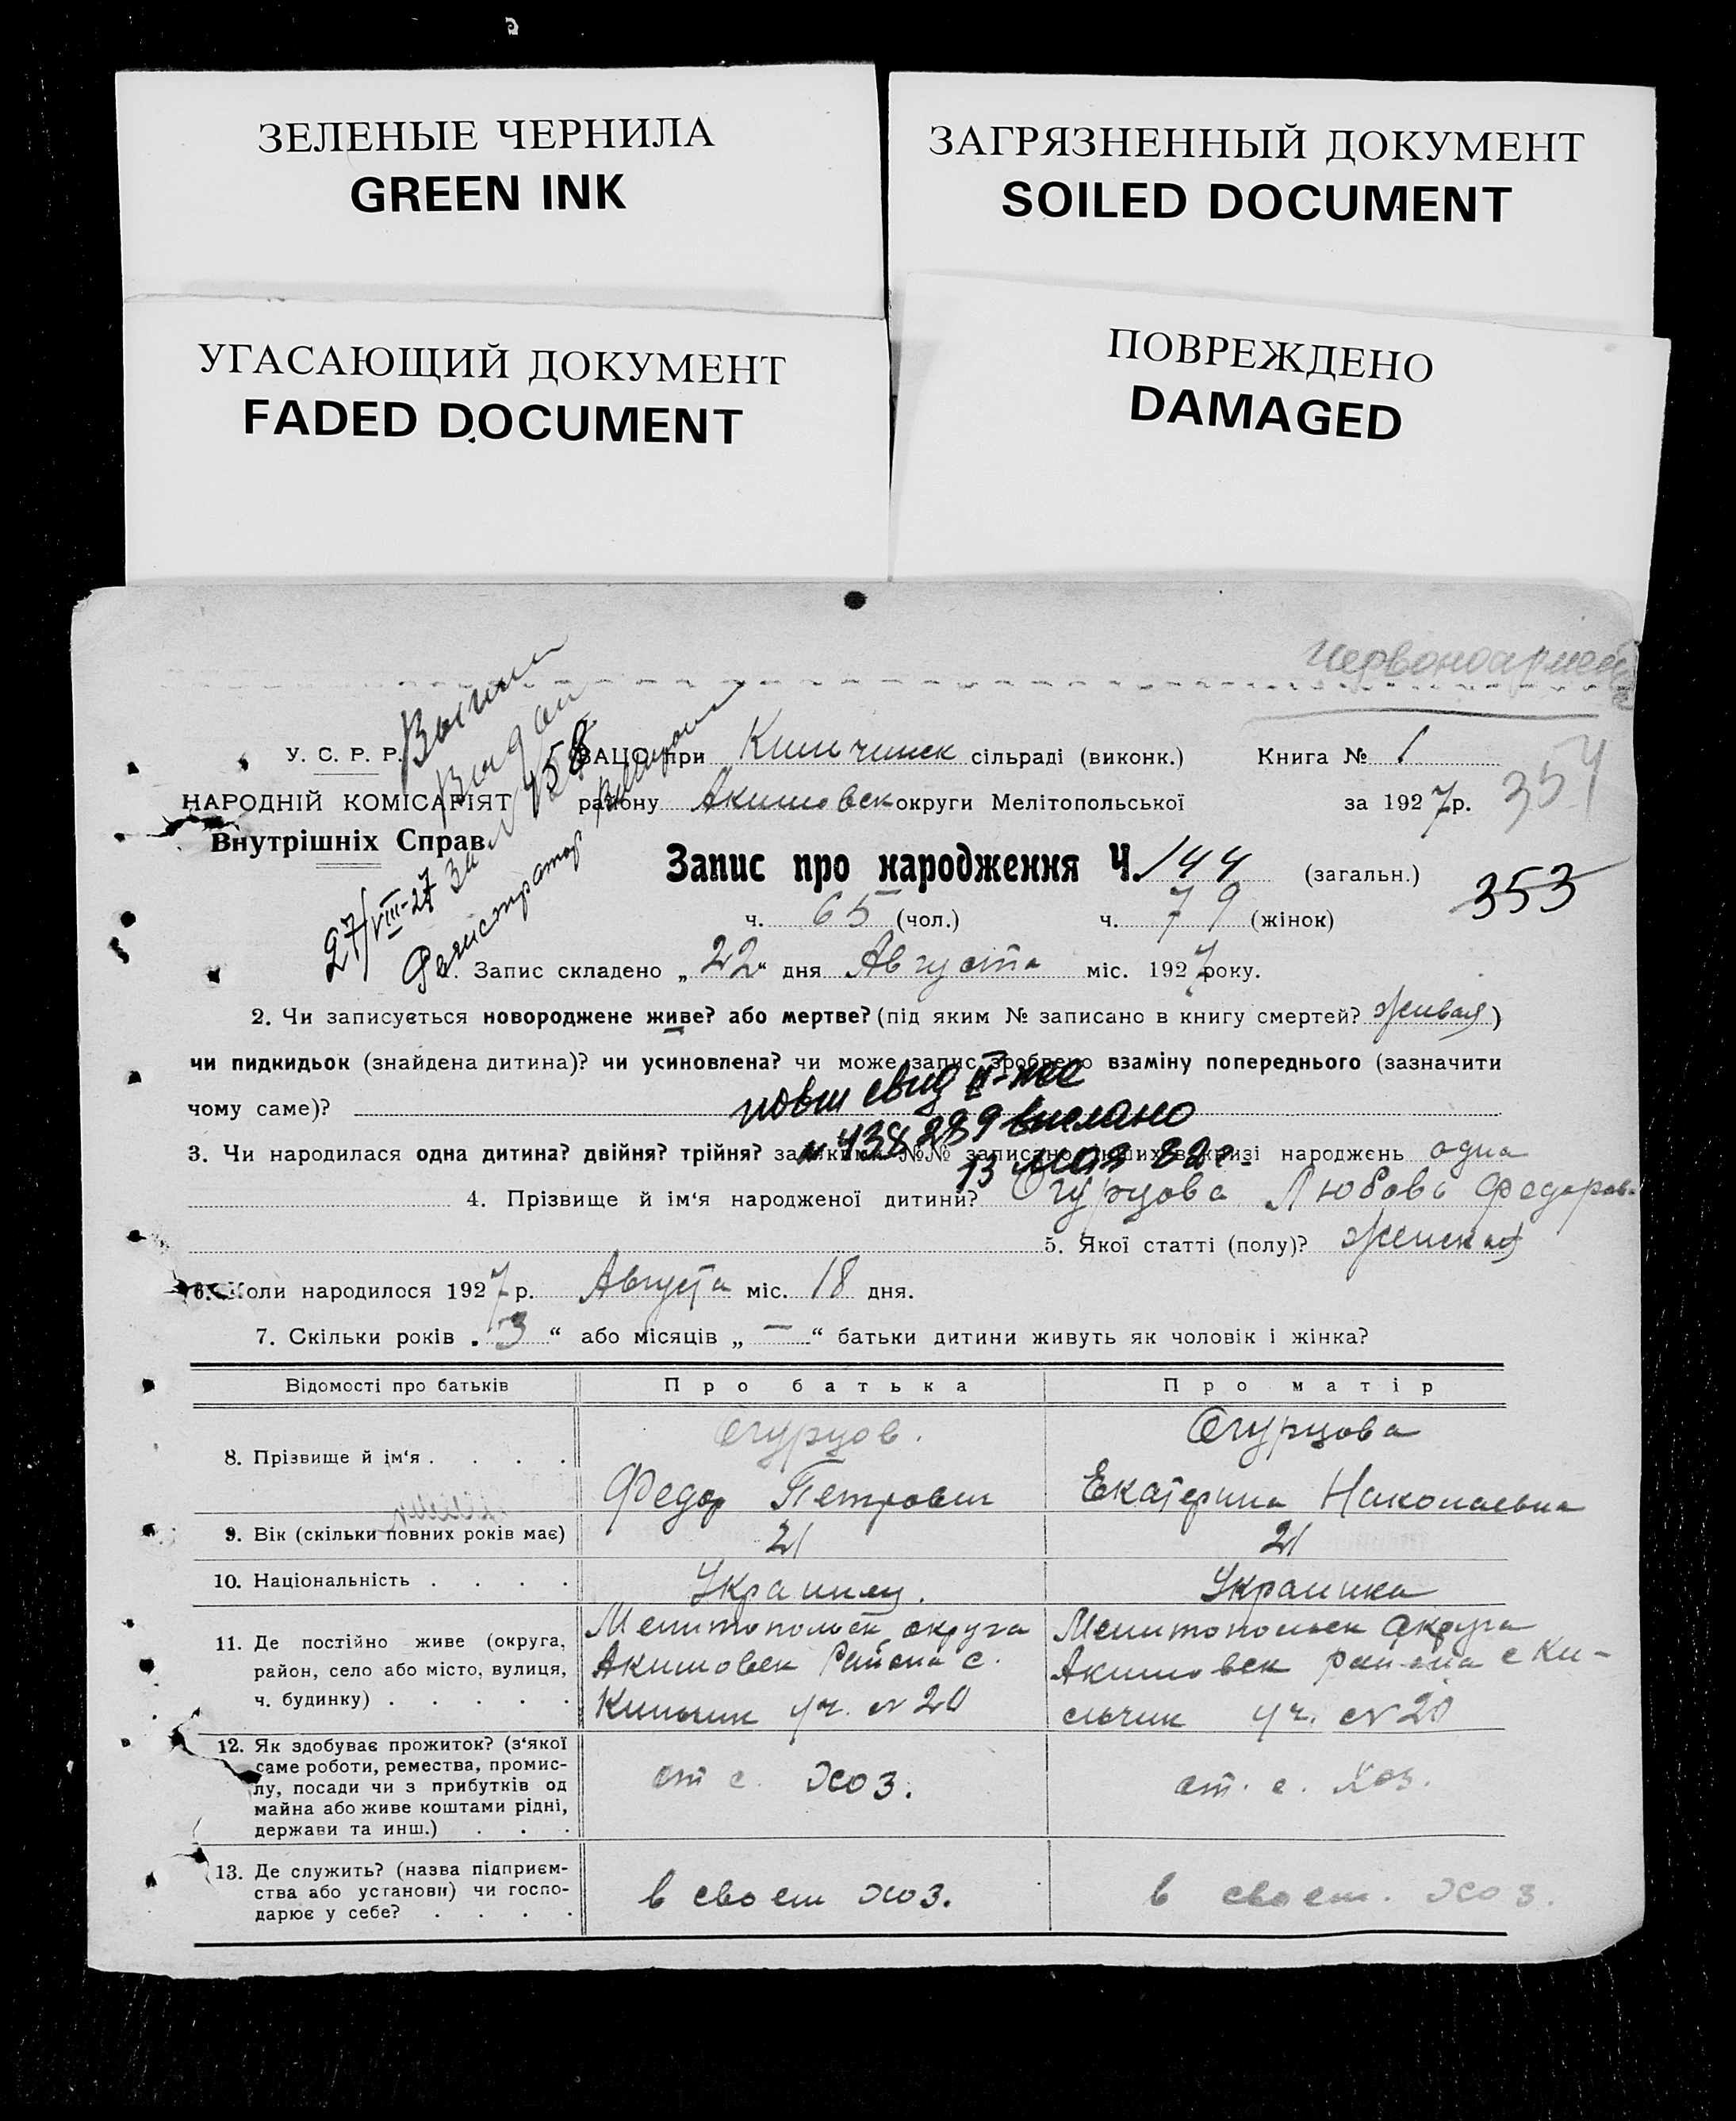 ЗЕЛЕНЫЕ ЧЕРНИЛА
GREEN INK
ЗАГРЯЗНЕННЫЙ ДОКУМЕНТ
SOILED DOCUMENT
УГАСАЮЩИЙ ДОКУМЕНТ
FADED DOCUMENT
ПОВРЕЖДЕНО
DAMAGED
Червоноармей
У. С. Р. Р.
НАРОДНІЙ КОМІСАРІЯТ
Внутрішніх Справ.
27/VIII-27 За № 458
ЗАЦС при Кильчинск сільраді (виконк.) Книга № 1
району Акимовск округи Мелітопольської за 1927 р. 354
Запис про народження Ч. 144 (загальн.) 353
ч. 65 (чол.) ч. 79 (жінок)
Запис складено „22“ дня Августа міс. 1927 року.
2. Чи записується новороджене живе? або мертве? (під яким № записано в книгу смертей? живая)
чи пидкидьок (знайдена дитина)? чи усиновлена? чи може запис зроблено взаміну попереднього (зазначити
чому саме)?
повт свид
438289 выслано
13 мая 82г.
3. Чи народилася одна дитина? двійня? трійня? за якими №№ записано інших в книзі народжень одна
4. Прізвище й ім‘я народженої дитини? Огурцова Любовь Федоров.
5. Якої статті (полу)? женская
6. Коли народилося 1927 р. Августа міс. 18 дня.
7. Скільки років „3“ або місяців „—“ батьки дитини живуть як чоловік і жінка?
Відомості про батьків Про батька Про матір
8. Прізвище й ім‘я . . . . Огурцов. Федор Петрович Огурцова Екатерина Николаевна
9. Вік (скільки повних років має) 21 21
10. Національність . . . . Украинец. Украинка
11. Де постійно живе (округа, район, село або місто, вулиця, ч. будинку) . . . . . Мелитопольск округа Акимовск Района с. Кильчик уч. № 20 Мелитопольск округа Акимовск района с Кильчик уч. № 20
12. Як здобуває прожиток? (з‘якої саме роботи, ремества, промислу, посади чи з прибутків од майна або живе коштами рідні, держави та инш.) . . . от с. хоз. от. с. хоз.
13. Де служить? (назва підприємства або установи) чи господарює у себе? . . . . в своем хоз. в своем. хоз.